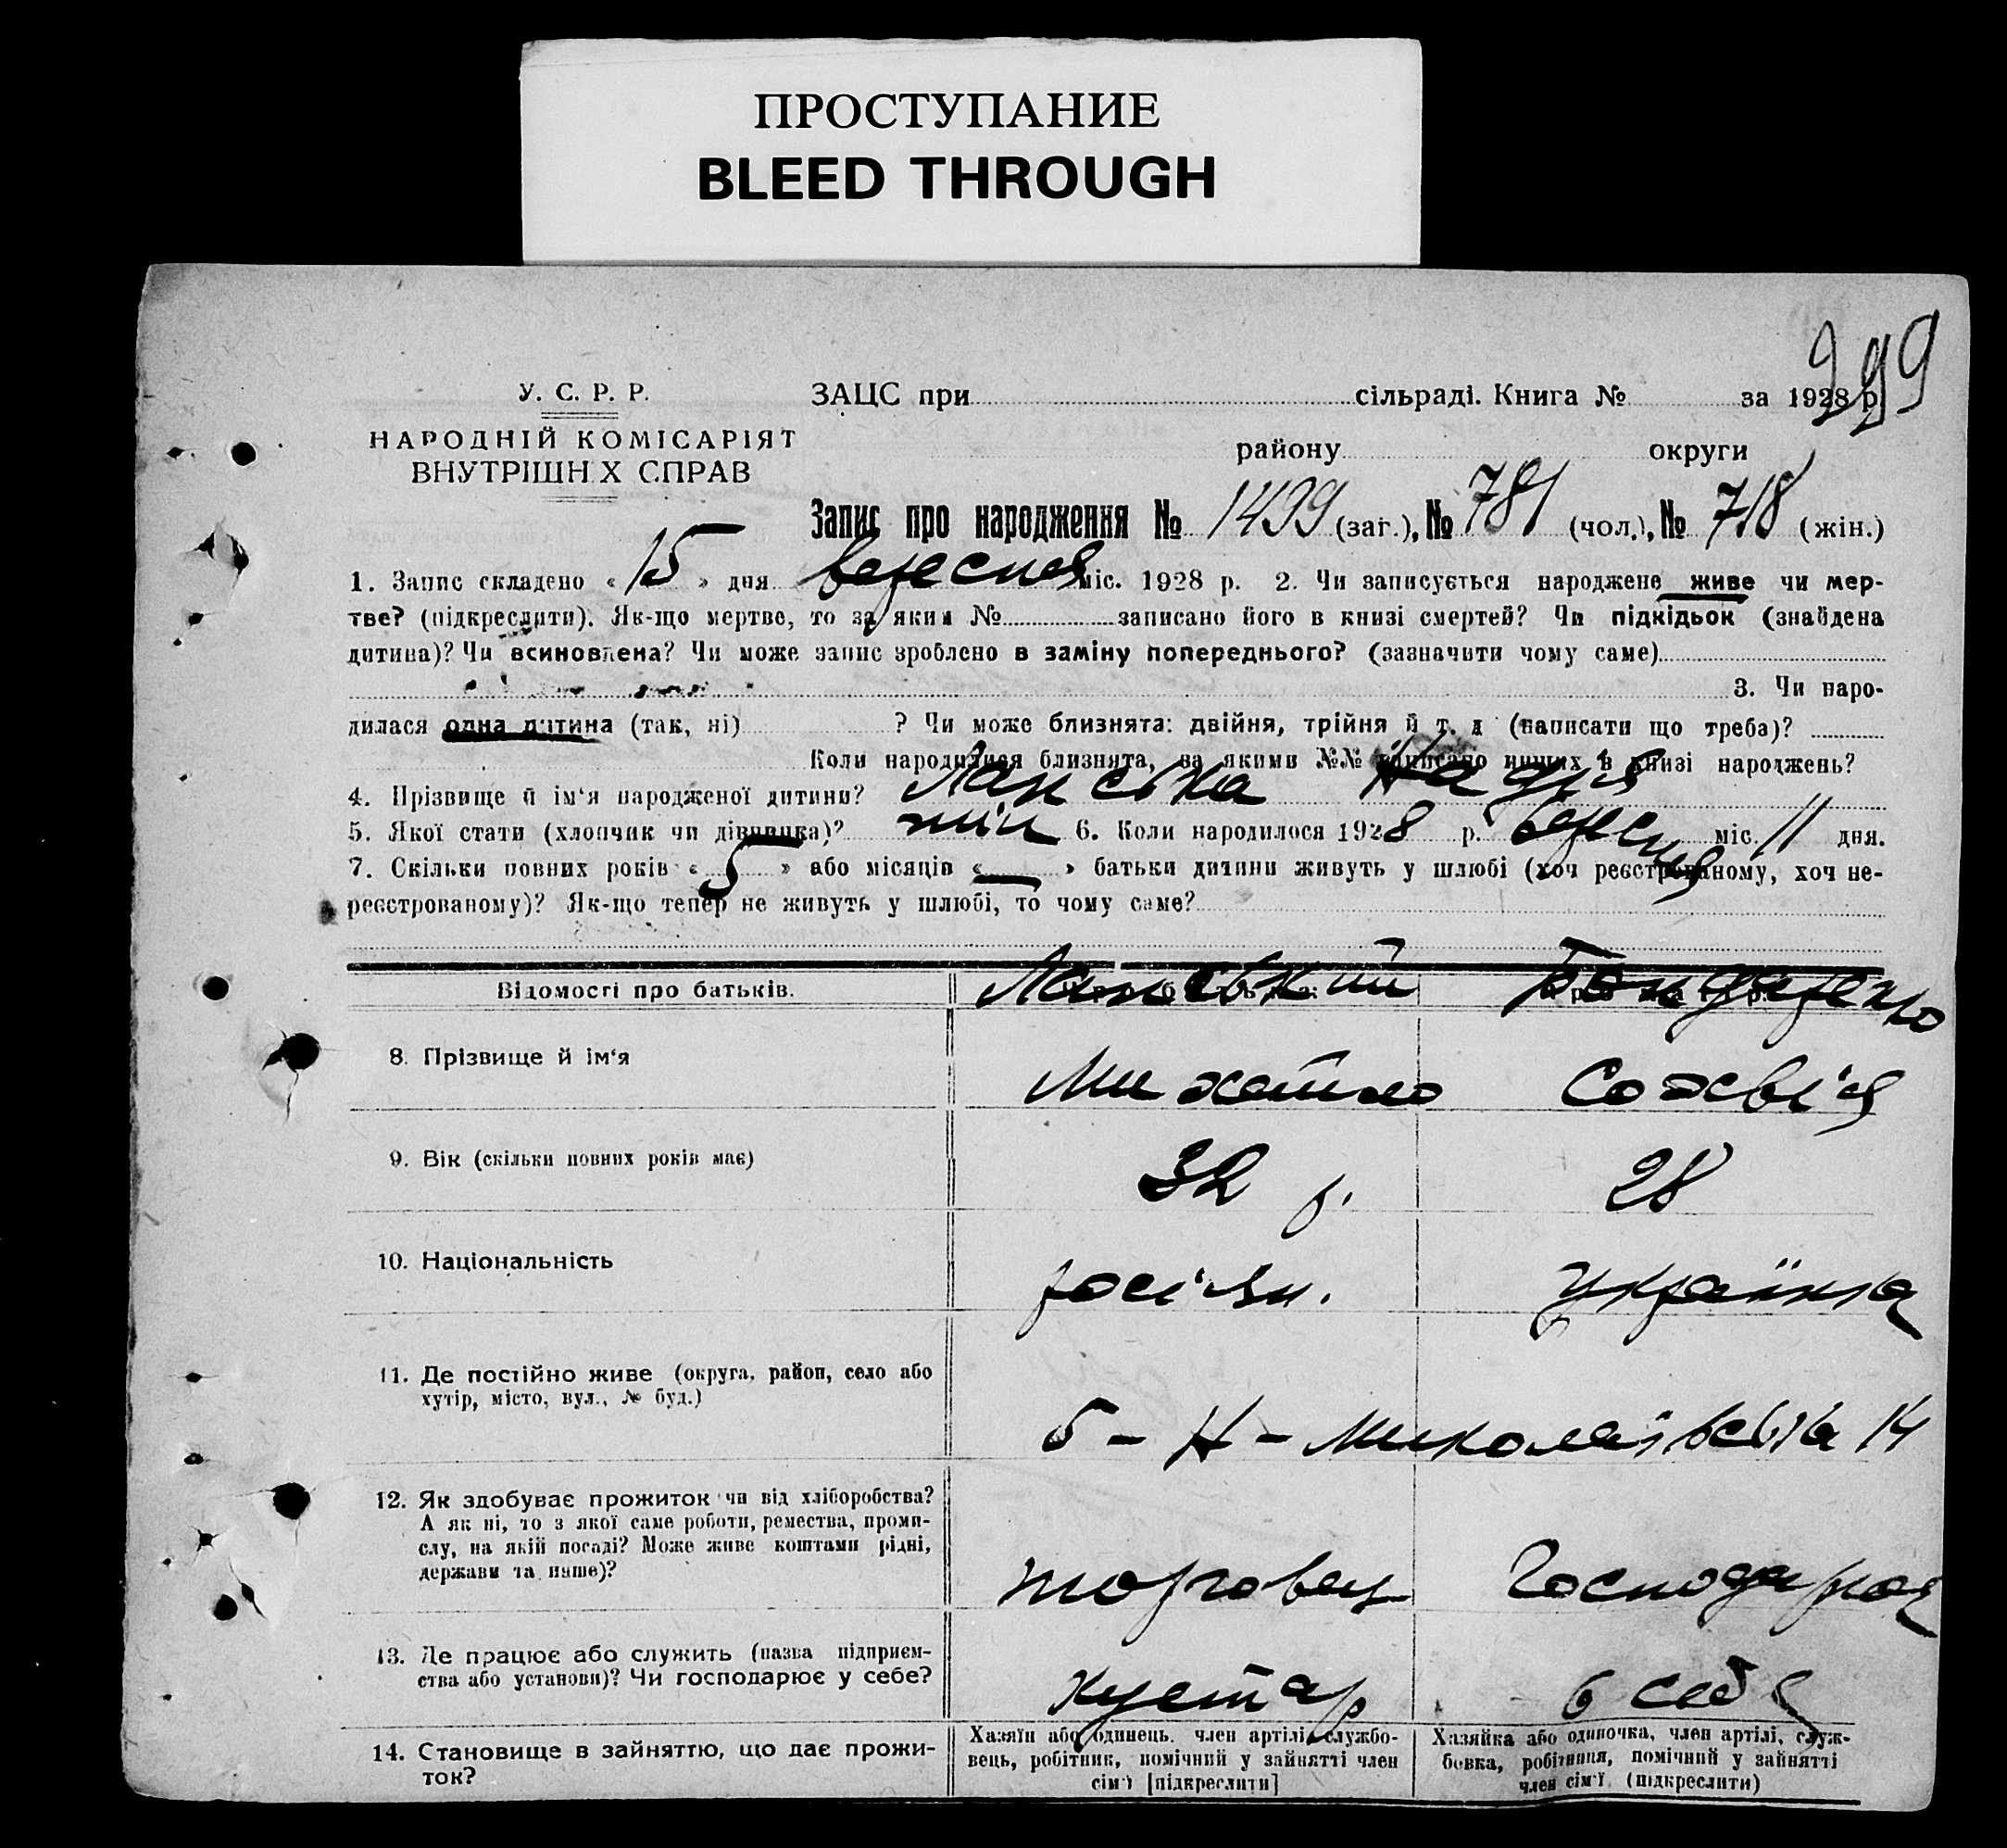 ПРОСТУПАНИЕ
BLEED THROUGH
299
У. С. Р. Р.
НАРОДНІЙ КОМІСАРІЯТ
ВНУТРІШН Х СПРАВ
ЗАЦС при сільраді. Книга № за 1928 р.
району округи
Запис про народження № 1499 (заг.), № 781 (чол.), № 718 (жін.)
1. Запис складено « 15 » дня вересня міс. 1928 р. 2. Чи записується народжене живе чи мер-
тве? (підкреслити). Як-що мертве, то за яким № записано його в книзі смертей? Чи підкідьок (знайдена
дитина)? Чи всиновлена? Чи може запис зроблено в заміну попереднього? (зазначити чому саме)
3. Чи наро-
дилася одна дитина (так, ні) ? Чи може близнята: двійня, трійня й т. д (написати що треба)?
Коли народилися близнята, за якими №№ записано инших в книзі народжень?
4. Прізвище й ім‘я народженої дитини? Ланська Надія
5. Якої стати (хлопчик чи дівчинка)? жін 6. Коли народилося 1928 р. вересня міс. 11 дня.
7. Скільки повних років « 5 » або місяців « — » батьки дитини живуть у шлюбі (хоч реєстрованому, хоч не-
реєстрованому)? Як-що тепер не живуть у шлюбі, то чому саме?
Відомості про батьків. Ланський Бондаренко
8. Прізвище й ім‘я Михайло Софвія
9. Вік (скільки повних років має) 32 р. 28
10. Національність росіян. українка
11. Де постійно живе (округа, район, село або
хутір, місто, вул., № буд.)
Б - Н - Миколаївська 14
12. Як здобуває прожиток чи від хліборобства?
А як ні, то з якої саме роботи, ремества, проми-
слу, на якій посаді? Може живе коштами рідні,
держави та инше)?
торговець Господарка
13. Де працює або служить (назва підприєм-
ства або установи)? Чи господарює у себе?
кустар в себе
14. Становище в зайняттю, що дає прожи-
ток?
Хазяїн або одинець, член артілі, службо-
вець, робітник, помічний у зайнятті член
сім‘ї [підкреслити]
Хазяйка або одиночка, член артілі, служ-
бовка, робітниця, помічний у зайнятті
член сім‘ї (підкреслити)